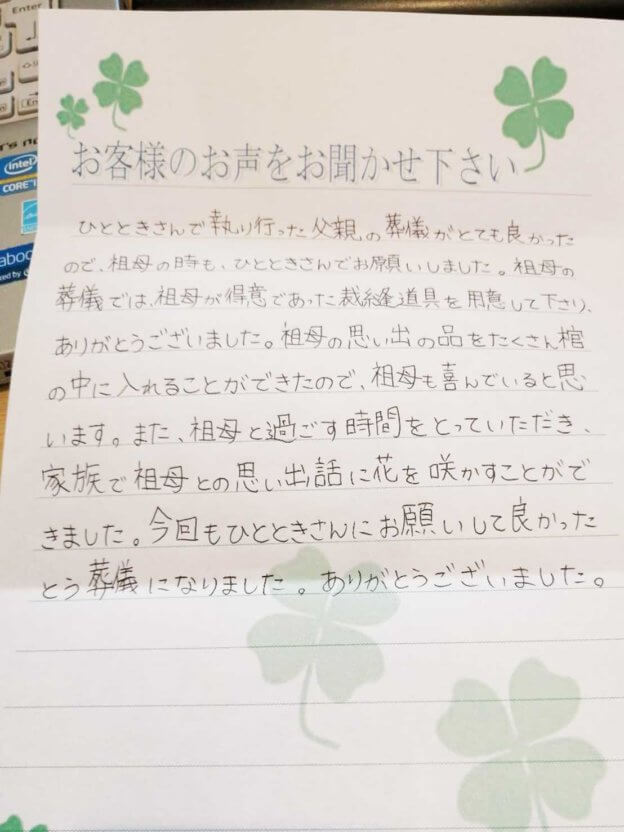 Enter
intel
CORE i
お客様のお声をお聞かせ下さい
ひとときさんで執り行った父親の葬儀がとても良かった
ので、祖母の時も、ひとときさんでお願いしました。祖母の
葬儀では、祖母が得意であった裁縫道具を用意して下さり、
ありがとうございました。祖母の思い出の品をたくさん棺
の中に入れることができたので、祖母も喜んでいると思
います。また、祖母と過ごす時間をとっていただき、
家族で祖母との思い出話に花を咲かすことがで
きました。今回もひとときさんにお願いして良かった
とう葬儀になりました。ありがとうございました。